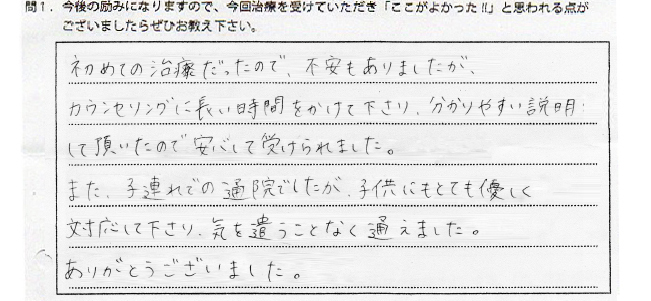 問1．今後の励みになりますので、今回治療を受けていただき「ここがよかった!!」と思われる点が
ございましたらぜひお教え下さい。
初めての治療だったので、不安もありましたが、
カウンセリングに長い時間をかけて下さり、分かりやすい説明
して頂いたので安心して受けられました。
また、子連れでの通院でしたが、子供にもとても優しく
対応して下さり、気を遣うことなく通えました。
ありがとうございました。